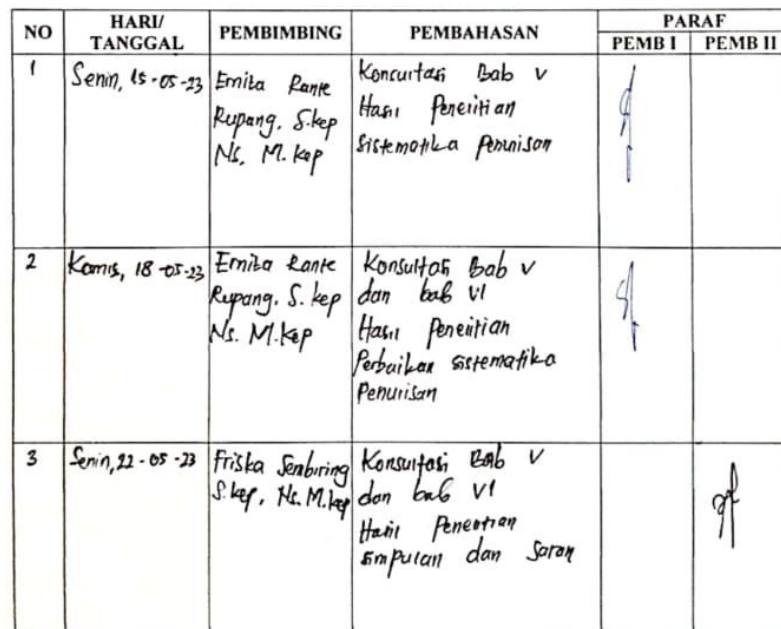 NO HARI/ TANGGAL PEMBIMBING PEMBAHASAN PARAF
PEMB I PEMB II
1 Senin, 15-05-23 Ernita Rante Rupang, S.kep Ns, M.kep
Konsultasi Bab V
Hasil Penelitian
Sistematika Penulisan
2 Kamis, 18-05-23 Ernita Rante Rupang, S. kep Ns. M.kep
Konsultasi Bab V
dan bab VI
Hasil Penelitian
Perbaikan sistematika
Penulisan
3 Senin, 22-05-23 Friska Sembiring S.kep, Ns. M.kep
Konsultasi Bab V
dan bab VI
Hasil Penelitian
simpulan dan Saran